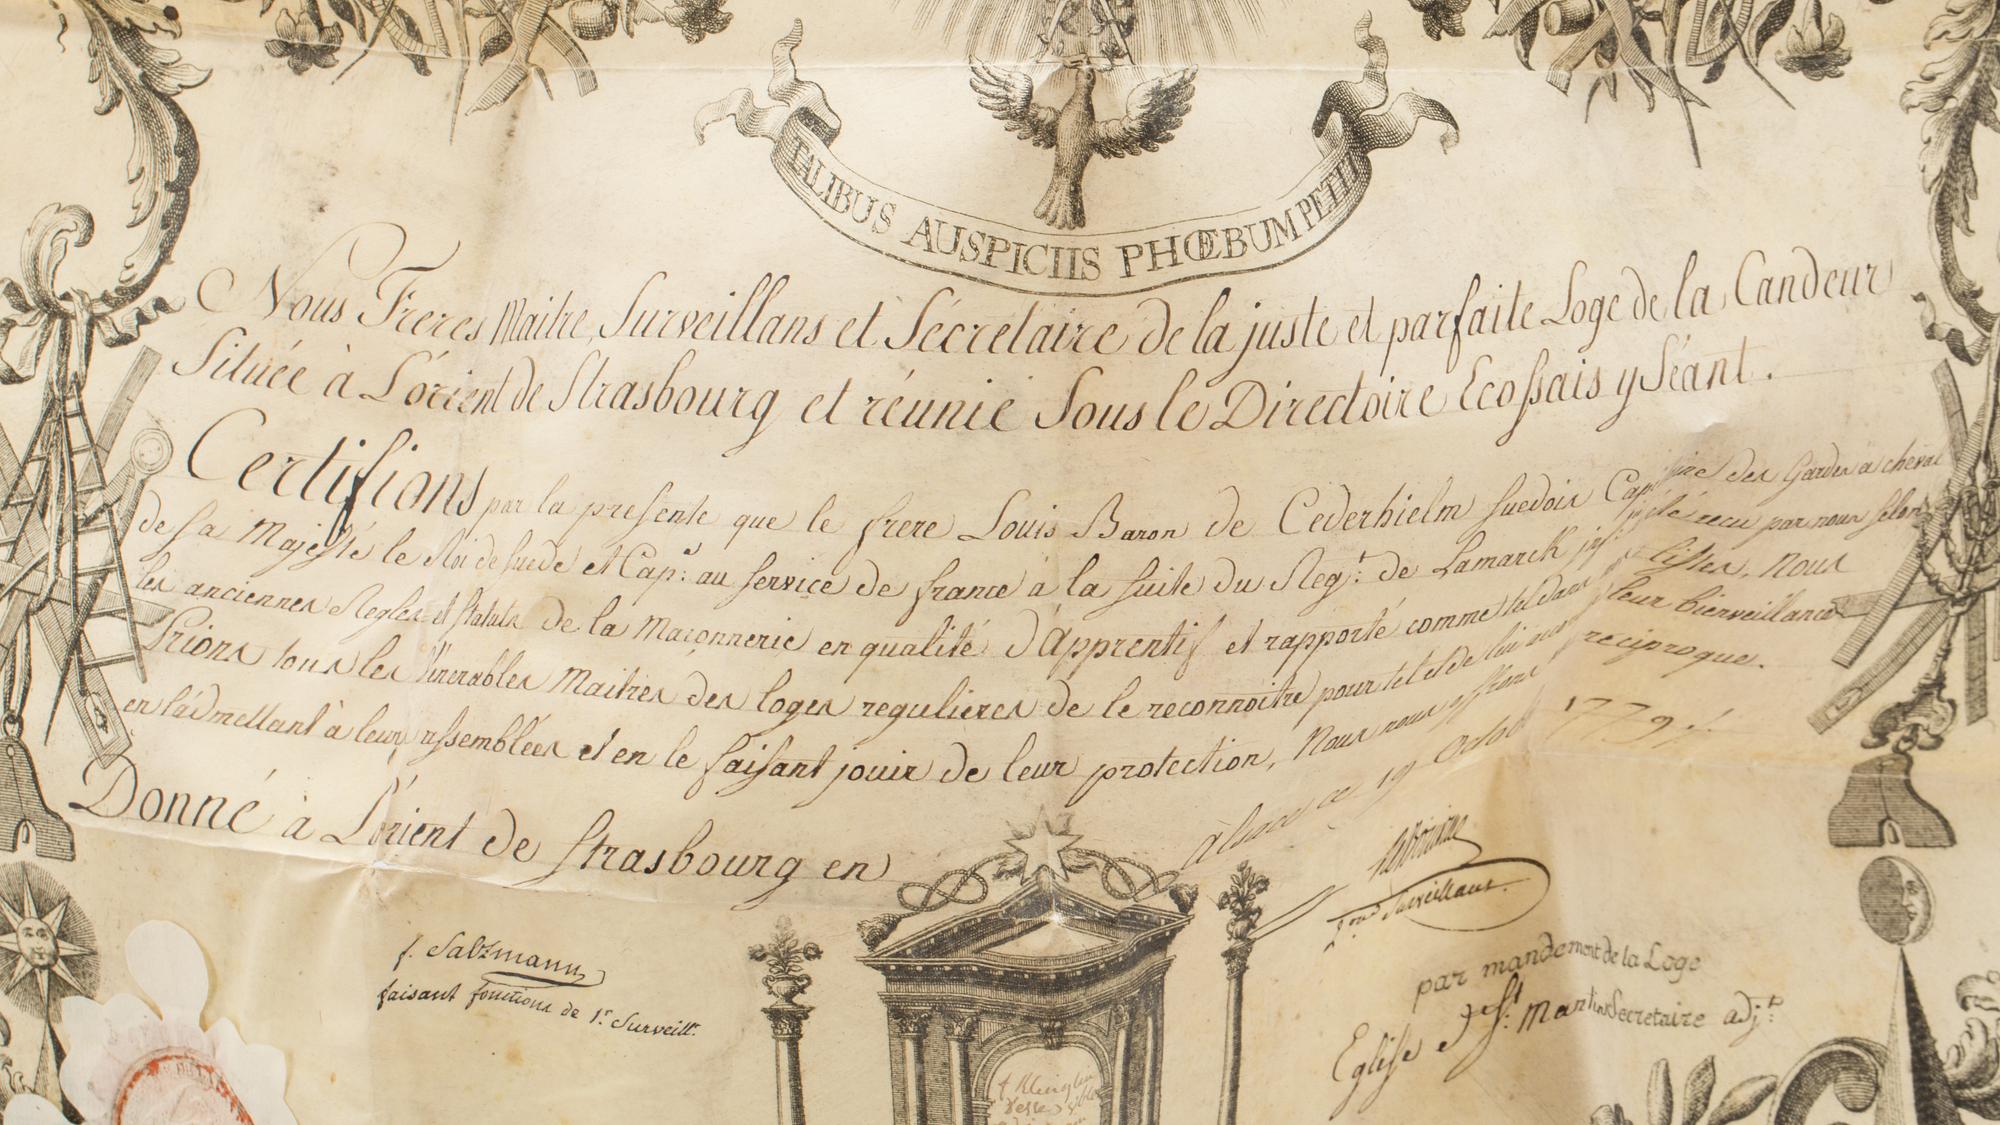 TALIBUS AUSPICIIS PHŒBUM PETIT
Nous Freres Maitre, Surveillans et Sécretaire de la juste et parfaite Loge de la Candeur
Située à L'órient de Strasbourg et réunie Sous le Directoire Ecossais y Séant.
Certifions par la presente que le frere Louis Baron de Cederhielm suedois Capitaine des Gardes a cheval
de sa Majesté le Roi de suede et Cap: au service de france à la suite du Reg:t de Lamarck recu par nous selon
les anciennes Regles et statuts de la Maçonnerie en qualité d'Apprentif et rapporté comme tel dans listes, Nous
Prions tous les Vénerables Maitres des loges regulieres de le reconnoitre pour tel et de lui leur bienveillance
en l'ádmettant à leurs assemblées et en le faisant jouir de leur protection, Nous nous offrons reciproque.
Donné à L'orient de Strasbourg en alsace ce 19 Octob 1779
f. Saltzmann
faisant fonctions de 1.r Surveill.t
Surveillant
par mandement de la Loge
Eglise St. Martin Secretaire adj.t